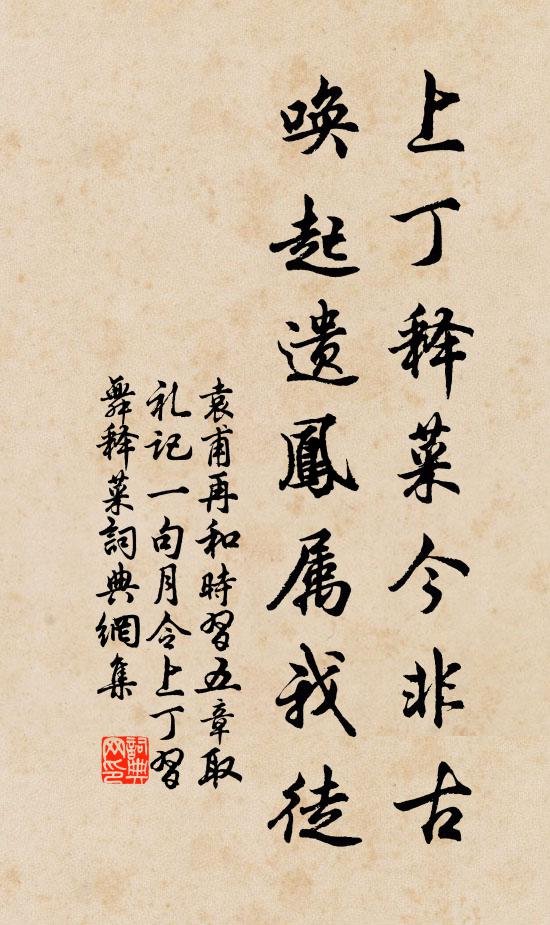 上丁释菜今非古
唤起遗鳳属我徒
袁甫再和時習五章取
礼記一句月令上丁習
舞释菜詞典網集
詞典
网印